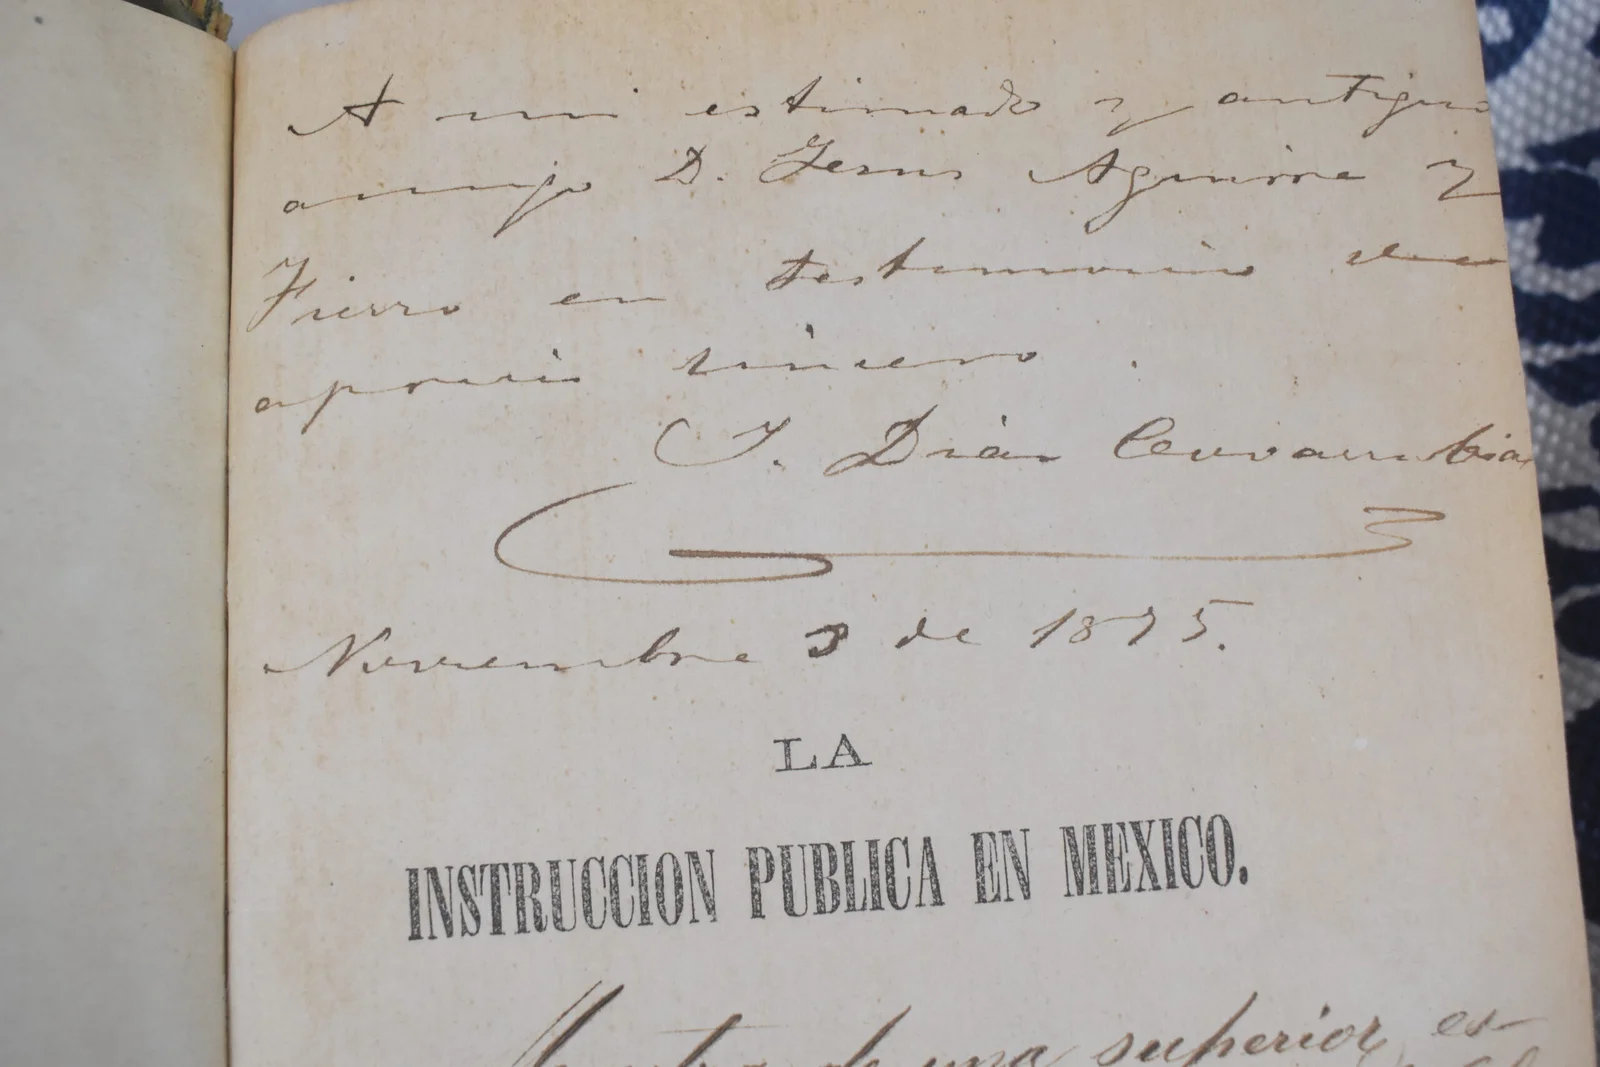 A mi estimado y antiguo
amigo D. Jesus Aguirre y
Fierro en testimonio de
aprecio sincero.
J. Diaz Covarrubias
Noviembre 3 de 1875.
LA
INSTRUCCION PUBLICA EN MEXICO.
de una superior es-